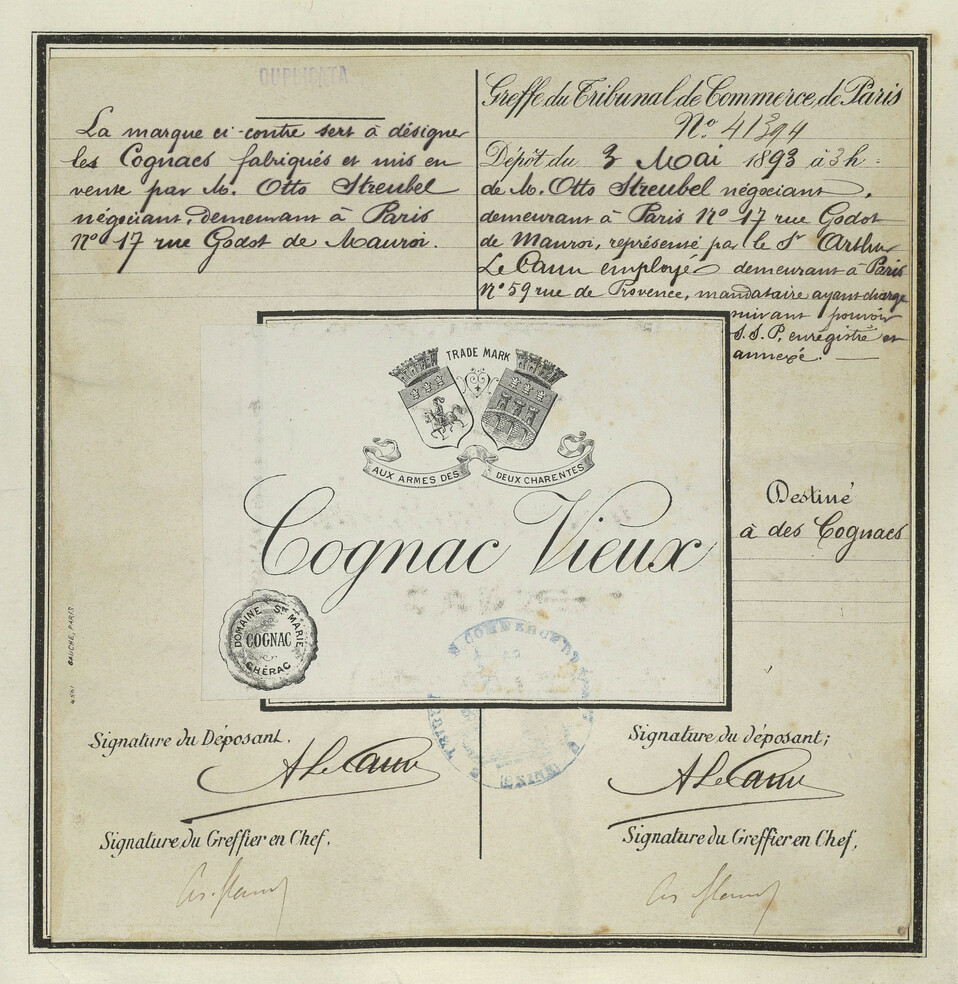 DUPLICATA
La marque ci-contre sert à désigner
les Cognacs fabriqués et mis en
vente par M. Otto Streubel
négociant, demeurant à Paris
No 17 rue Godot de Mauroi.
Greffe du Tribunal de Commerce, de Paris
No. 41394
Dépôt du 3 Mai 1893 à 3 h
de M. Otto Streubel négociant,
demeurant à Paris No 17 rue Godot
de Mauroi, représenté par le Sr Arthur
Le Cann employé demeurant à Paris
No 59 rue de Provence, mandataire ayant charge
suivant pouvoir
S.S.P. enregistré et
annexé.
TRADE MARK
AUX ARMES DES DEUX CHARENTES
Cognac Vieux
DOMAINE Ste MARIE
COGNAC
CHÉRAC
Destiné
à des Cognacs
GAUCHE, PARIS
COMMERCE DE
Signature du Déposant.
A Le Cann
Signature du Greffier en Chef.
Signature du déposant;
A Le Cann
Signature du Greffier en Chef.